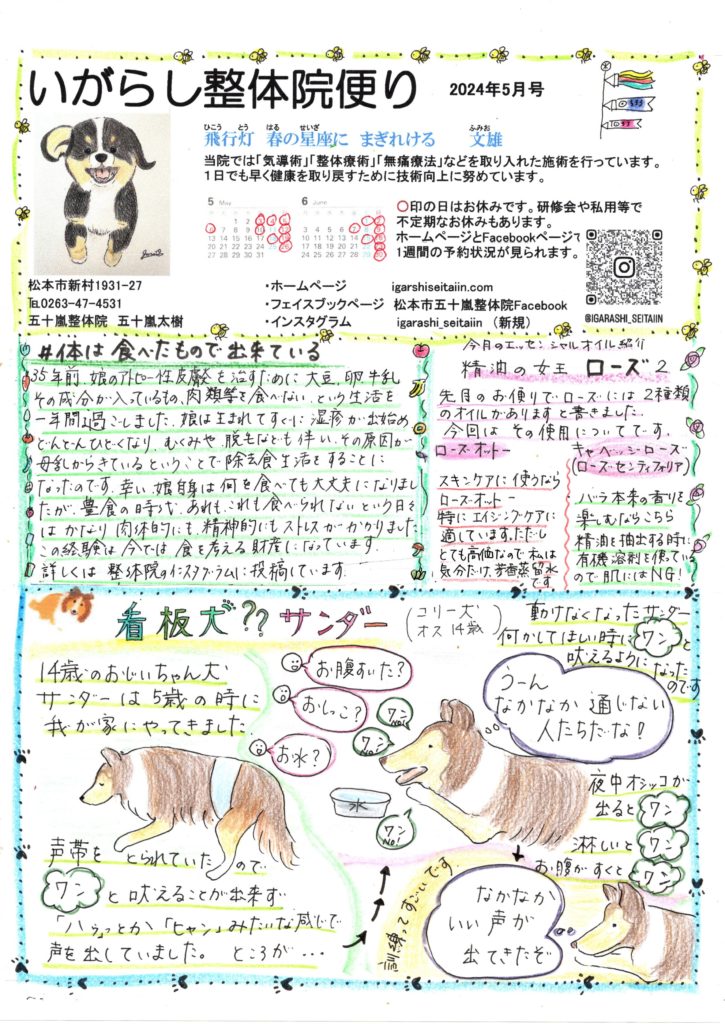 いがらし整体院便り
2024年5月号
飛行灯 春の星座に まぎれける 文雄
ひこう とう はる せいざ ふみお
当院では「気導術」「整体療術」「無痛療法」などを取り入れた施術を行っています。
1日でも早く健康を取り戻すために技術向上に努めています。
5 May
6 June
○印の日はお休みです。研修会や私用等で
不定期なお休みもあります。
ホームページとFacebookページで
1週間の予約状況が見られます。
@IGARASHI_SEITAIIN
松本市新村1931-27
℡0263-47-4531
五十嵐整体院 五十嵐太樹
・ホームページ igarshiseitaiin.com
・フェイスブックページ 松本市五十嵐整体院Facebook
・インスタグラム igarashi_seitaiin (新規)
#体は食べたもので出来ている
35年前、娘のアトピー性皮膚を治すために大豆、卵、牛乳
その成分が入っているもの、肉類等を食べない、という生活を
一年間過ごしました。娘は生まれてすぐに湿疹が出始め
どんどんひどくなり、むくみや、脱毛なども伴い、その原因が
母乳からきているということで除去食生活をすることに
なったのです。幸い、娘自身は何を食べても大丈夫になりまし
たが、豊食の時代、あれもこれも食べられないという日々
はかなり肉体的にも、精神的にもストレスがかかりました
この経験は今では食を考える財産になっています.
詳しくは整体院のインスタグラムに投稿しています.
今月のエッセンシャルオイル紹介
精油の女王 ローズ2
先月のお便りでローズには2種類
のオイルがありますと書きました.
今回はその使用についてです.
ローズオットー
スキンケアに使うなら
ローズオットー
特にエイジングケアに
適しています。ただし
とても高価なので私は
気分だけ、芳香蒸留水
です
キャベッジ・ローズ
(ローズ・センティフォリア)
バラ本来の香りを
楽しむならこちら
精油を抽出する時に
有機溶剤を使っている
ので肌にはNG!
看板犬?? サンダー
(コリー犬
オス14歳)
14歳のおじいちゃん犬
サンダーは5歳の時に
我が家にやってきました
声帯をとられていたので
ワン と吠えることが出来ず
「ハウッ」とか「ヒャン」みたいな感じで
声を出していました。ところが…
動けなくなったサンダー
何かしてほしい時に ワン と
吠えるようになった
のです
お腹すいた?
おしっこ?
お水?
ワン NO!
ワン NO!
ワン NO!
水
うーん
なかなか通じない
人たちだな!
夜中オシッコが
出ると ワン
淋しいと ワン
お腹がすくと ワン
訓練ってすごいです.
なかなか
いい声が
出てきたぞ